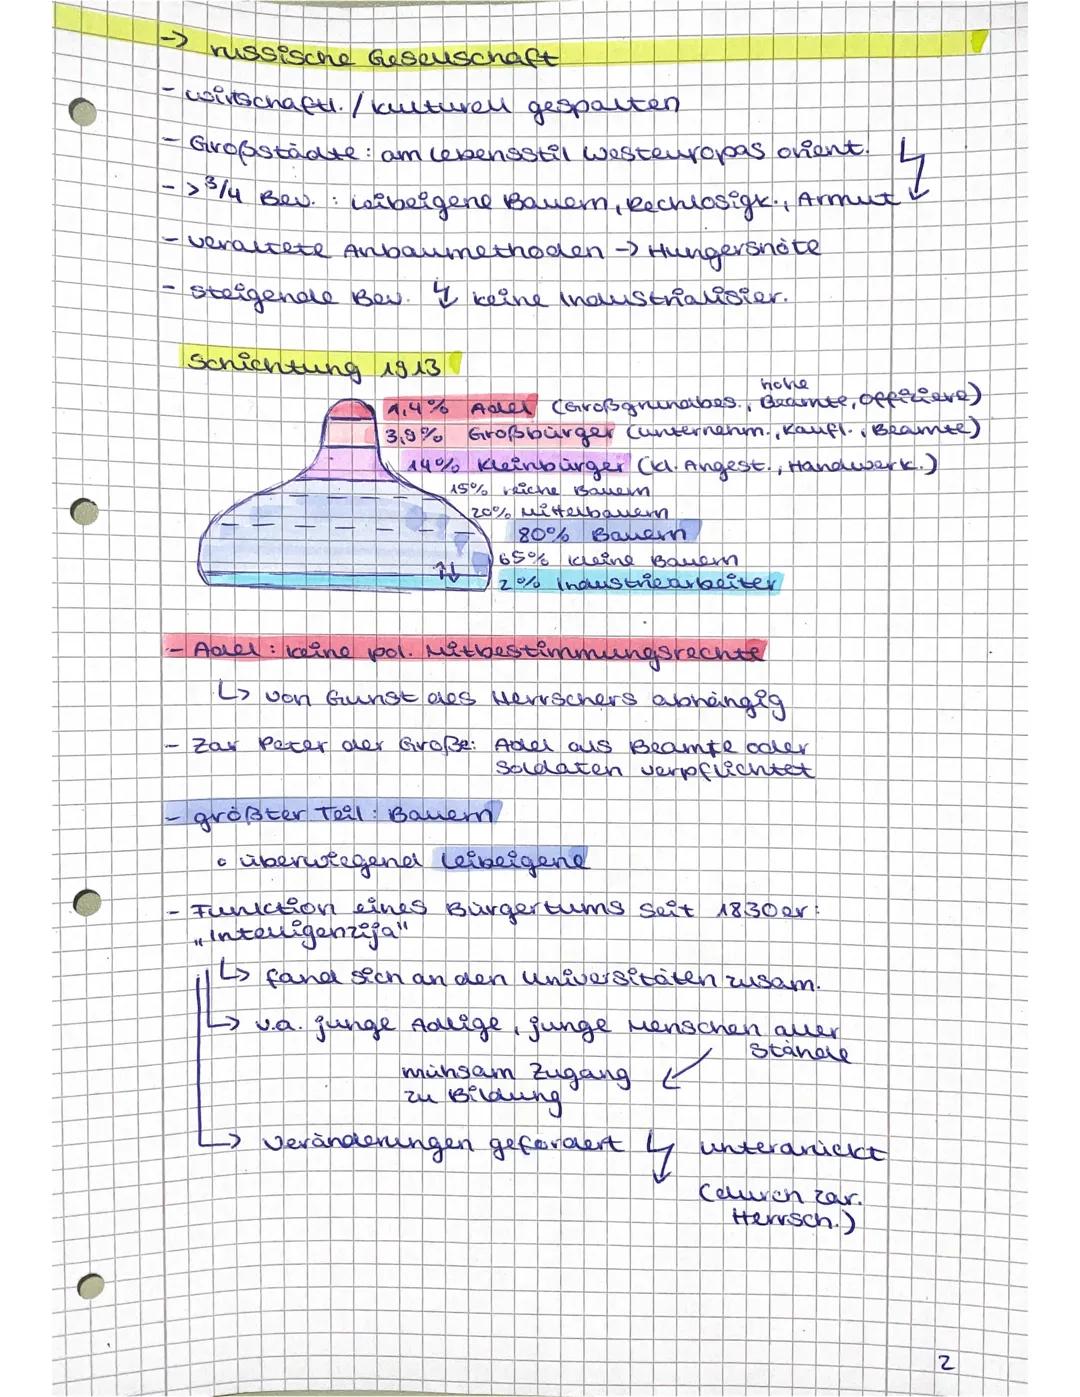 -> russische Gesellschaft
- wirtschaftl. / kulturell gespalten
- Großstädte: am Lebensstil Westeuropas orient.
- > 3/4 Bev. : leibeigene Bauern, Rechlosigk., Armut
- veraltete Anbaumethoden -> Hungersnöte
- steigende Bev. ↯ keine Industrialisier.
Schichtung 1913
1,4% Adel (Großgrundbes., hohe Beamte, Offiziere)
3,9% Großbürger (Unternehm., Kaufl., Beamte)
14% Kleinbürger (kl. Angest., Handwerk.)
15% reiche Bauern
20% Mittelbauern
80% Bauern
65% kleine Bauern
2% Industriearbeiter
- Adel: keine pol. Mitbestimmungsrechte
↳ von Gunst des Herrschers abhängig
- Zar Peter der Große: Adel als Beamte oder
Soldaten verpflichtet
- größter Teil: Bauern
∘ überwiegend Leibeigene
- Funktion eines Bürgertums seit 1830er:
„Intelligenzija"
↳ fand sich an den Universitäten zusam.
↳ v.a. junge Adlige, junge Menschen aller
Stände
mühsam Zugang
zu Bildung
↳ Veränderungen gefordert ↯ unterdrückt
(durch zar.
Herrsch.)
2